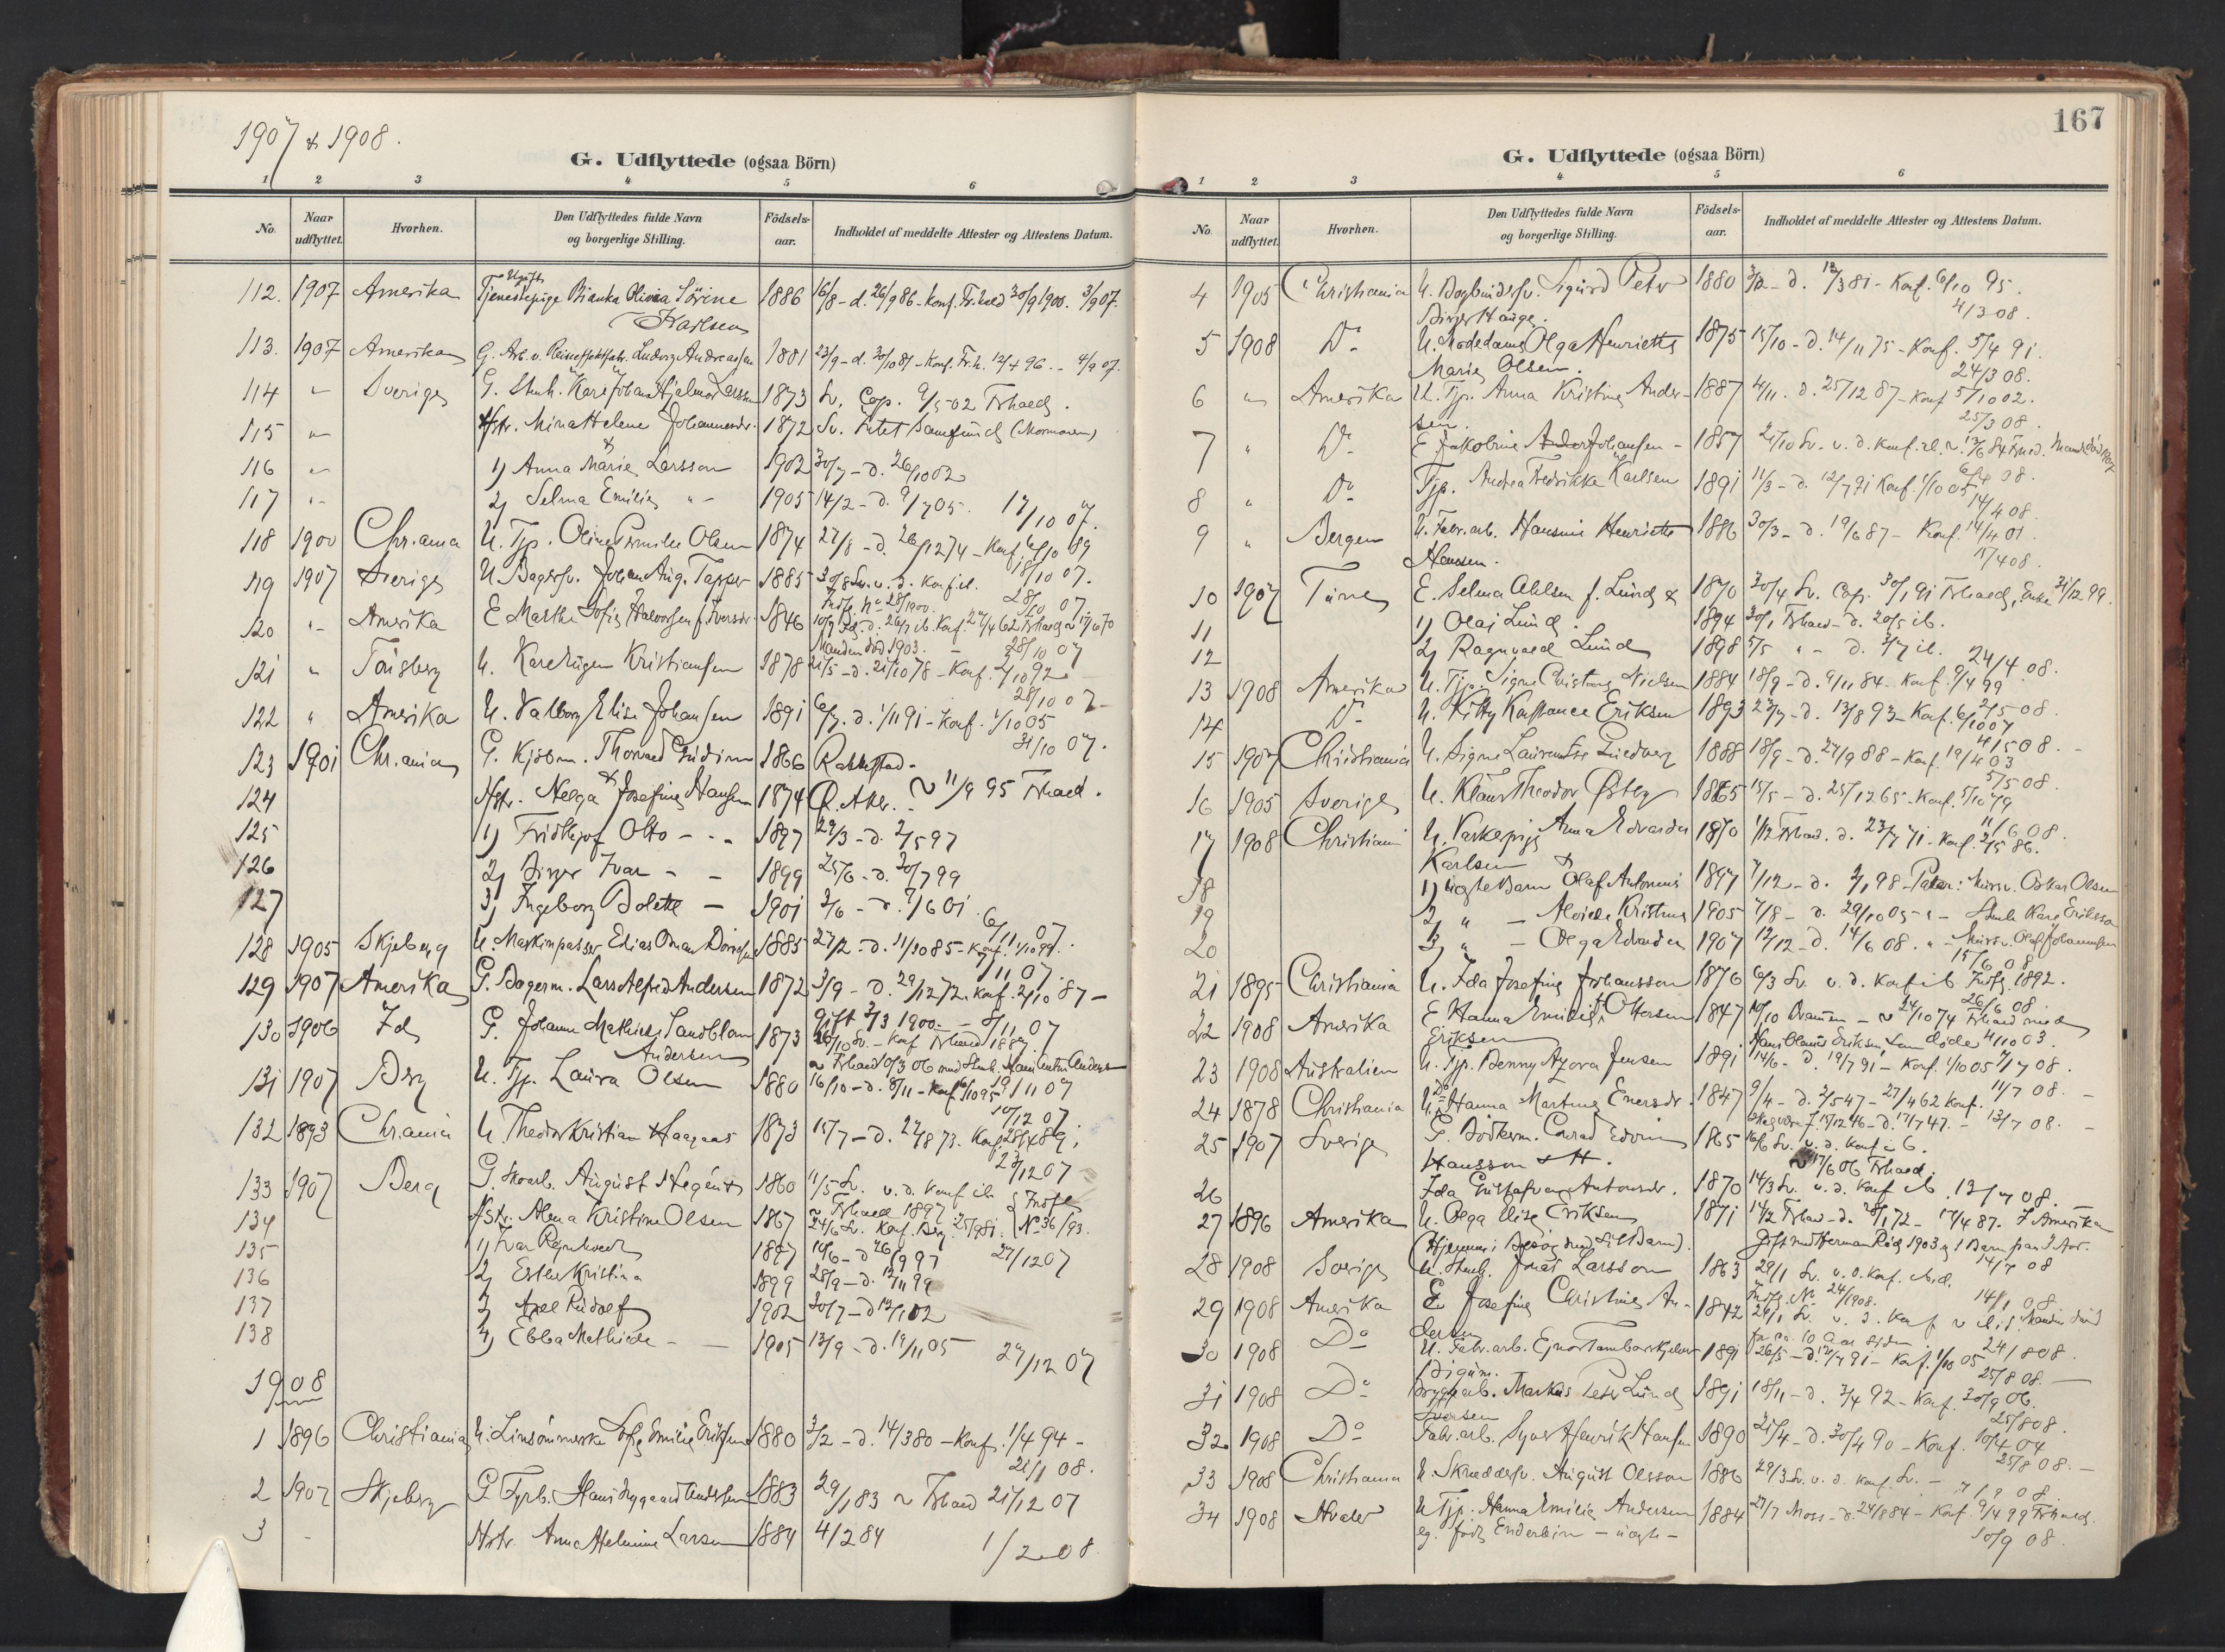 1907 & 1908.
G. Udflyttede (ogsaa Börn)
1 2 3 4 5 6
No. Naar udflyttet. Hvorhen. Den Udflyttedes fulde Navn og borgerlige Stilling. Födsels-aar. Indholdet af meddelte Attester og Attestens Datum.
112. 1907 Amerika Ugift Tjenestepige Bianka Olivia Sörine 1886 16/8 - d. 26/9 86 - konf. Fr.hald 30/9 1900. 3/9 07.
Karlsen
113. 1907 Amerika G. Arb. v. Ludvig Andreassen 1881 23/9 - d. 30/10 81 - Konf. Fr.h. 12/4 96 - 4/9 07.
114 " Sverige G. Stenh. Karl Johan Hjalmar Larsson 1873 Sv. Cop. 9/5 02 Frhald.
115 " Hstr. Mina Helene Johannesdr. 1872 Sv. Samfund (Mormonen)
&
116 " 1) Anna Marie Larsson 1902 30/7 - d. 26/10 02
117 " 2) Selma Emilie " - 1905 14/2 - d. 9/7 05. 17/10 07.
118 1900 Chr.ania U. Tjp. Oline Pernille Olsen 1874 27/8 - d. 26/12 74 - Konf. 6/10 89
18/10 07.
119 1907 Sverige U. Bagersv. Johan Aug. Tapper 1885 30/8 Sv. v. d. Konf. ib.
28/10 07
120 " Amerika E Marthe Sofie Halvorsen f. Iversdr. 1846
Manden död 1903. - 28/10 07
121 " Tönsberg U. Kristiansen 1878 21/5 - d. 21/10 78 - Konf. 2/10 92
28/10 07 -
122 " Amerika U. Valborg Elise Johansen 1891 6/7 - d. 1/11 91 - Konf. 1/10 05
31/10 07.
123 1901 Chr.ania G. Kjöbm. Thorvald 1866 Rakkestad -
124 Hstr. Helga Josefine Hansen 1874 Ö. Aker. ~ 11/9 95 Frhald.
125 1) Fridtjof Otto - - - 1897 29/3 - d. 2/5 97
126 2) Birger Ivar - - 1899 25/6 - d. 20/7 99
127 3) Ingeborg Bolette - 1901 2/6 - d. 9/6 01
6/11 07
128 1905 Skjeberg U. Maskinpasser Elias Oskar 1885 27/2 - d. 11/10 85 - Konf. 1/10 99.
7/11 07.
129 1907 Amerika G. Bagerm. Lars Alfred Andersen 1872 3/9 - d. 29/12 72. Konf. 2/10 87 -
Gift 3/3 1900 - 8/11 07
130 1906 Id G. Johanne Mathilde Sandblom 1873
Andersen
131 1907 Berg U. Tjp. Laura Olsen 1880 16/10 - d. 8/11 - Konf. 6/10 95 19/11 07
10/12 07.
132 1893 Chr.ania U. Theodor Kristian Haagaas 1873 15/7 - d. 27/8 73. Konf.
23/12 07
133 1907 Berg G. Skoarb. August Hegént & 1860 11/5 Sv. v. d. Konf ib.
134 Hstr. Alma Kristine Olsen 1867 24/6 Sv. Konf. Berg. 25/9 81. No 36/93.
135 1) Ivar Reinhardt 1897 27/12 07
136 2) Esther Kristina 1899 28/9 - d. 12/11 99
137 3) Axel Rudolf 1902 30/7 - d
138 4) Ebba Mathilde - - 1905 13/9 - d. 19/11 05
27/12 07
1908
1 1896 Christiania U. Linsömmerske Sofie Emilie Eriksen 1880 3/2 - d. 14/3 80 - Konf. 1/4 94 -
21/1 08.
2 1907 Skjeberg G. Fyrb. Hans Nygaard Andersen 1883 29/1 83 ~ Frhald 21/12 07
3 - Hstr. Anna Helmine Larsen 1884 4/2 84
1/2 08
167
G. Udflyttede (ogsaa Börn)
1 2 3 4 5 6
No. Naar udflyttet. Hvorhen. Den Udflyttedes fulde Navn og borgerlige Stilling. Födsels-aar. Indholdet af meddelte Attester og Attestens Datum.
4 1905 Christiania U. Bogbindersv. Sigurd Peter 1880 d. 12/3 81 - Konf. 6/10 95.
Birger Hauge. 4/3 08.
5 1908 Do U. Modedame Olga Henriette 1875 15/10 - d. 14/11 75 - Konf. 5/4 91.
Marie Olsen. 24/3 08.
6 " Amerika U. Tjp. Anna Kristine Ander- 1887 4/11. d. 25/12 87 - Konf 5/10 02.
sen. 25/3 08.
7 " Do E Jakobine Johansen - 1857
6/4 08.
8 " Do Tjp. Andrea Fredrikke Karlsen 1891 11/3 - d. 12/7 91 Konf. 1/10 05
14/4 08.
9 " Bergen U. Fabr.arb. Hansine Henriette 1886 30/3 - d. 19/6 87 - Konf. 14/4 01.
Hansen. 15/4 08.
10 1907 Tune E. Selma Ahlsen f. Lund & 1870 30/4 Sv. Cop. 30/1 91 Frhald, Enke 31/12 99.
11 1) Olaf Lund. 1894 30/1 Frhald - d. 20/5 ib.
12 2) Ragnvald Lund 1898 5/5 " - d. 3/7 ib. 24/4 08.
13 1908 Amerika U. Tjp. Signe Christine Nielsen 1884 18/9 - d. 9/11 84 - Konf. 9/4 99
2/5 08.
14 Do U. Kitty Konstance Eriksen 1893 23/7 - d. 13/8 93 - Konf. 6/10 07
4/5 08. -
15 1907 Christiania U. Signe Laurentse Lindberg 1888 18/9 - d. 27/9 88 - Konf. 19/4 03
5/5 08.
16 1905 Sverige U. Klaus Theodor Østby 1865 15/5 - d. 25/12 65 - Konf. 5/10 79
11/6 08.
17 1908 Christiania U. Vaskepige Anna Edvarda 1870 1/12 Frhald. d. 23/7 71 - Konf. 2/5 86.
Karlsen &
18 1) uægte Barn Olaf Antonius 1897 7/12 - d. 2/1 98 - Fader: Mursv. Oskar Olsen
19 2) " - Alvilde Kristine 1905 7/8 - d. 29/10 05 - " - Stenh. Karl Eriksson
20 3) " - Olga Edvarda 1907 12/12 - d. 14/6 08. " - Mursv. Olaf Johannesen
15/6 08
21 1895 Christiania U. Ida Josefine Johansson 1876 6/3 Sv. v. d. Konf. ib. 1892.
26/6 08.
22 1908 Amerika E Hanna Emilie Ottersen 1847 10/10 Drammen - ~ 24/10 74 Frhald med
Eriksen Hans Olaus Eriksen som döde 4/11 03.
23 1908 Australien U. Tjp. Benny Azora Jensen 1891 14/6 - d. 19/7 91 - Konf. 1/10 05 7/7 08.
11/7 08. -
24 1878 Christiania U. Do Hanna Martine Enersdr. 1847 9/4 - d. 2/5 47 - 27/4 62 Konf.
13/7 08. -
25 1907 Sverige G. Bödkerm. Conrad Edvin 1865 16/6 Sv. v. d. Konf ib.
Hansson & H. ~ 17/6 06 Frhald.
26 Ida Gustafva Antonsdr. 1870 14/3 Sv. v. d. Konf ib. 13/7 08.
27 1896 Amerika U. Olga Elise Eriksen 1871 14/2 Frhald - d. 28/1 72 - 17/4 87. I Amerika
(Hjemme i Besög med sit Barn). Gift med Herman 1903 & 1 Barn paa 2 Aar.
14/7 08
28 1908 Sverige U. Stenh. Jonas Larsson 1863 29/1 Sv. v. d. Konf. ib. d.
No 24/1908. 14/1 08
29 1908 Amerika E Josefine Christine An- 1842 29/1 Sv. v. d. Konf ~ ib. d. Manden död
dersen for ca. 10 Aar siden 24/8 08.
30 1908 Do U. Fabr.arb. Ejnar Tambarskjelver 1891 26/5 - d. 12/7 91 - Konf. 1/10 05
Bigum. 25/8 08. -
31 1908 Do Bryggearb. Markus Peter Lund 1891 18/11 - d. 3/4 92 - Konf. 30/9 06.
Iversen 25/8 08.
32. 1908 Do Fabr.arb. Syver Henrik Hansen 1890 21/4 - d. 30/4 90 - Konf. 10/4 04
25/8 08. -
33 1908 Christiania U. Skreddersv. August Olsson 1886 29/3 Sv. v. d. Konf. Sv. -
7/9 08
34 1908 Hvaler U Tjp. Hanna Emilie Andersen 1884 27/7 Moss - d. 24/8 84 - Konf. 9/4 99 Frhald.
eg. född Enderbirn - uægte - 10/9 08.